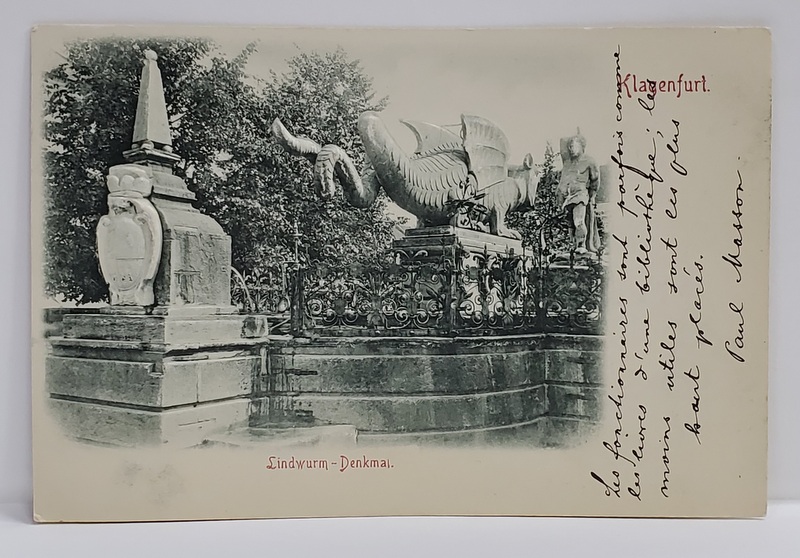 Klagenfurt.
Lindwurm-Denkmal.
Les fonctionnaires sont parfois comme
les livres d'une bibliothèque; les
moins utiles sont les plus
haut placés.
Paul Masson.